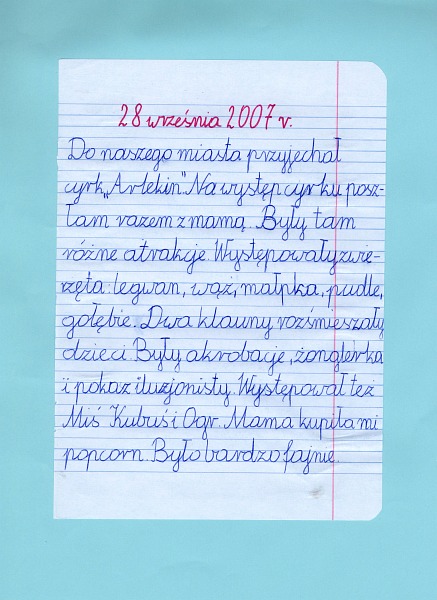 28 września 2007 r.
Do naszego miasta przyjechał
cyrk „Arlekin". Na występ cyrku posz-
łam razem z mamą. Były tam
różne atrakcje. Występowały zwie-
rzęta: legwan, wąż, małpka, pudle,
gołębie. Dwa klauny rozśmieszały
dzieci. Były akrobacje, żonglerka
i pokaz iluzjonisty. Występował też
Miś Kubuś i Ogr. Mama kupiła mi
popcorn. Było bardzo fajnie.